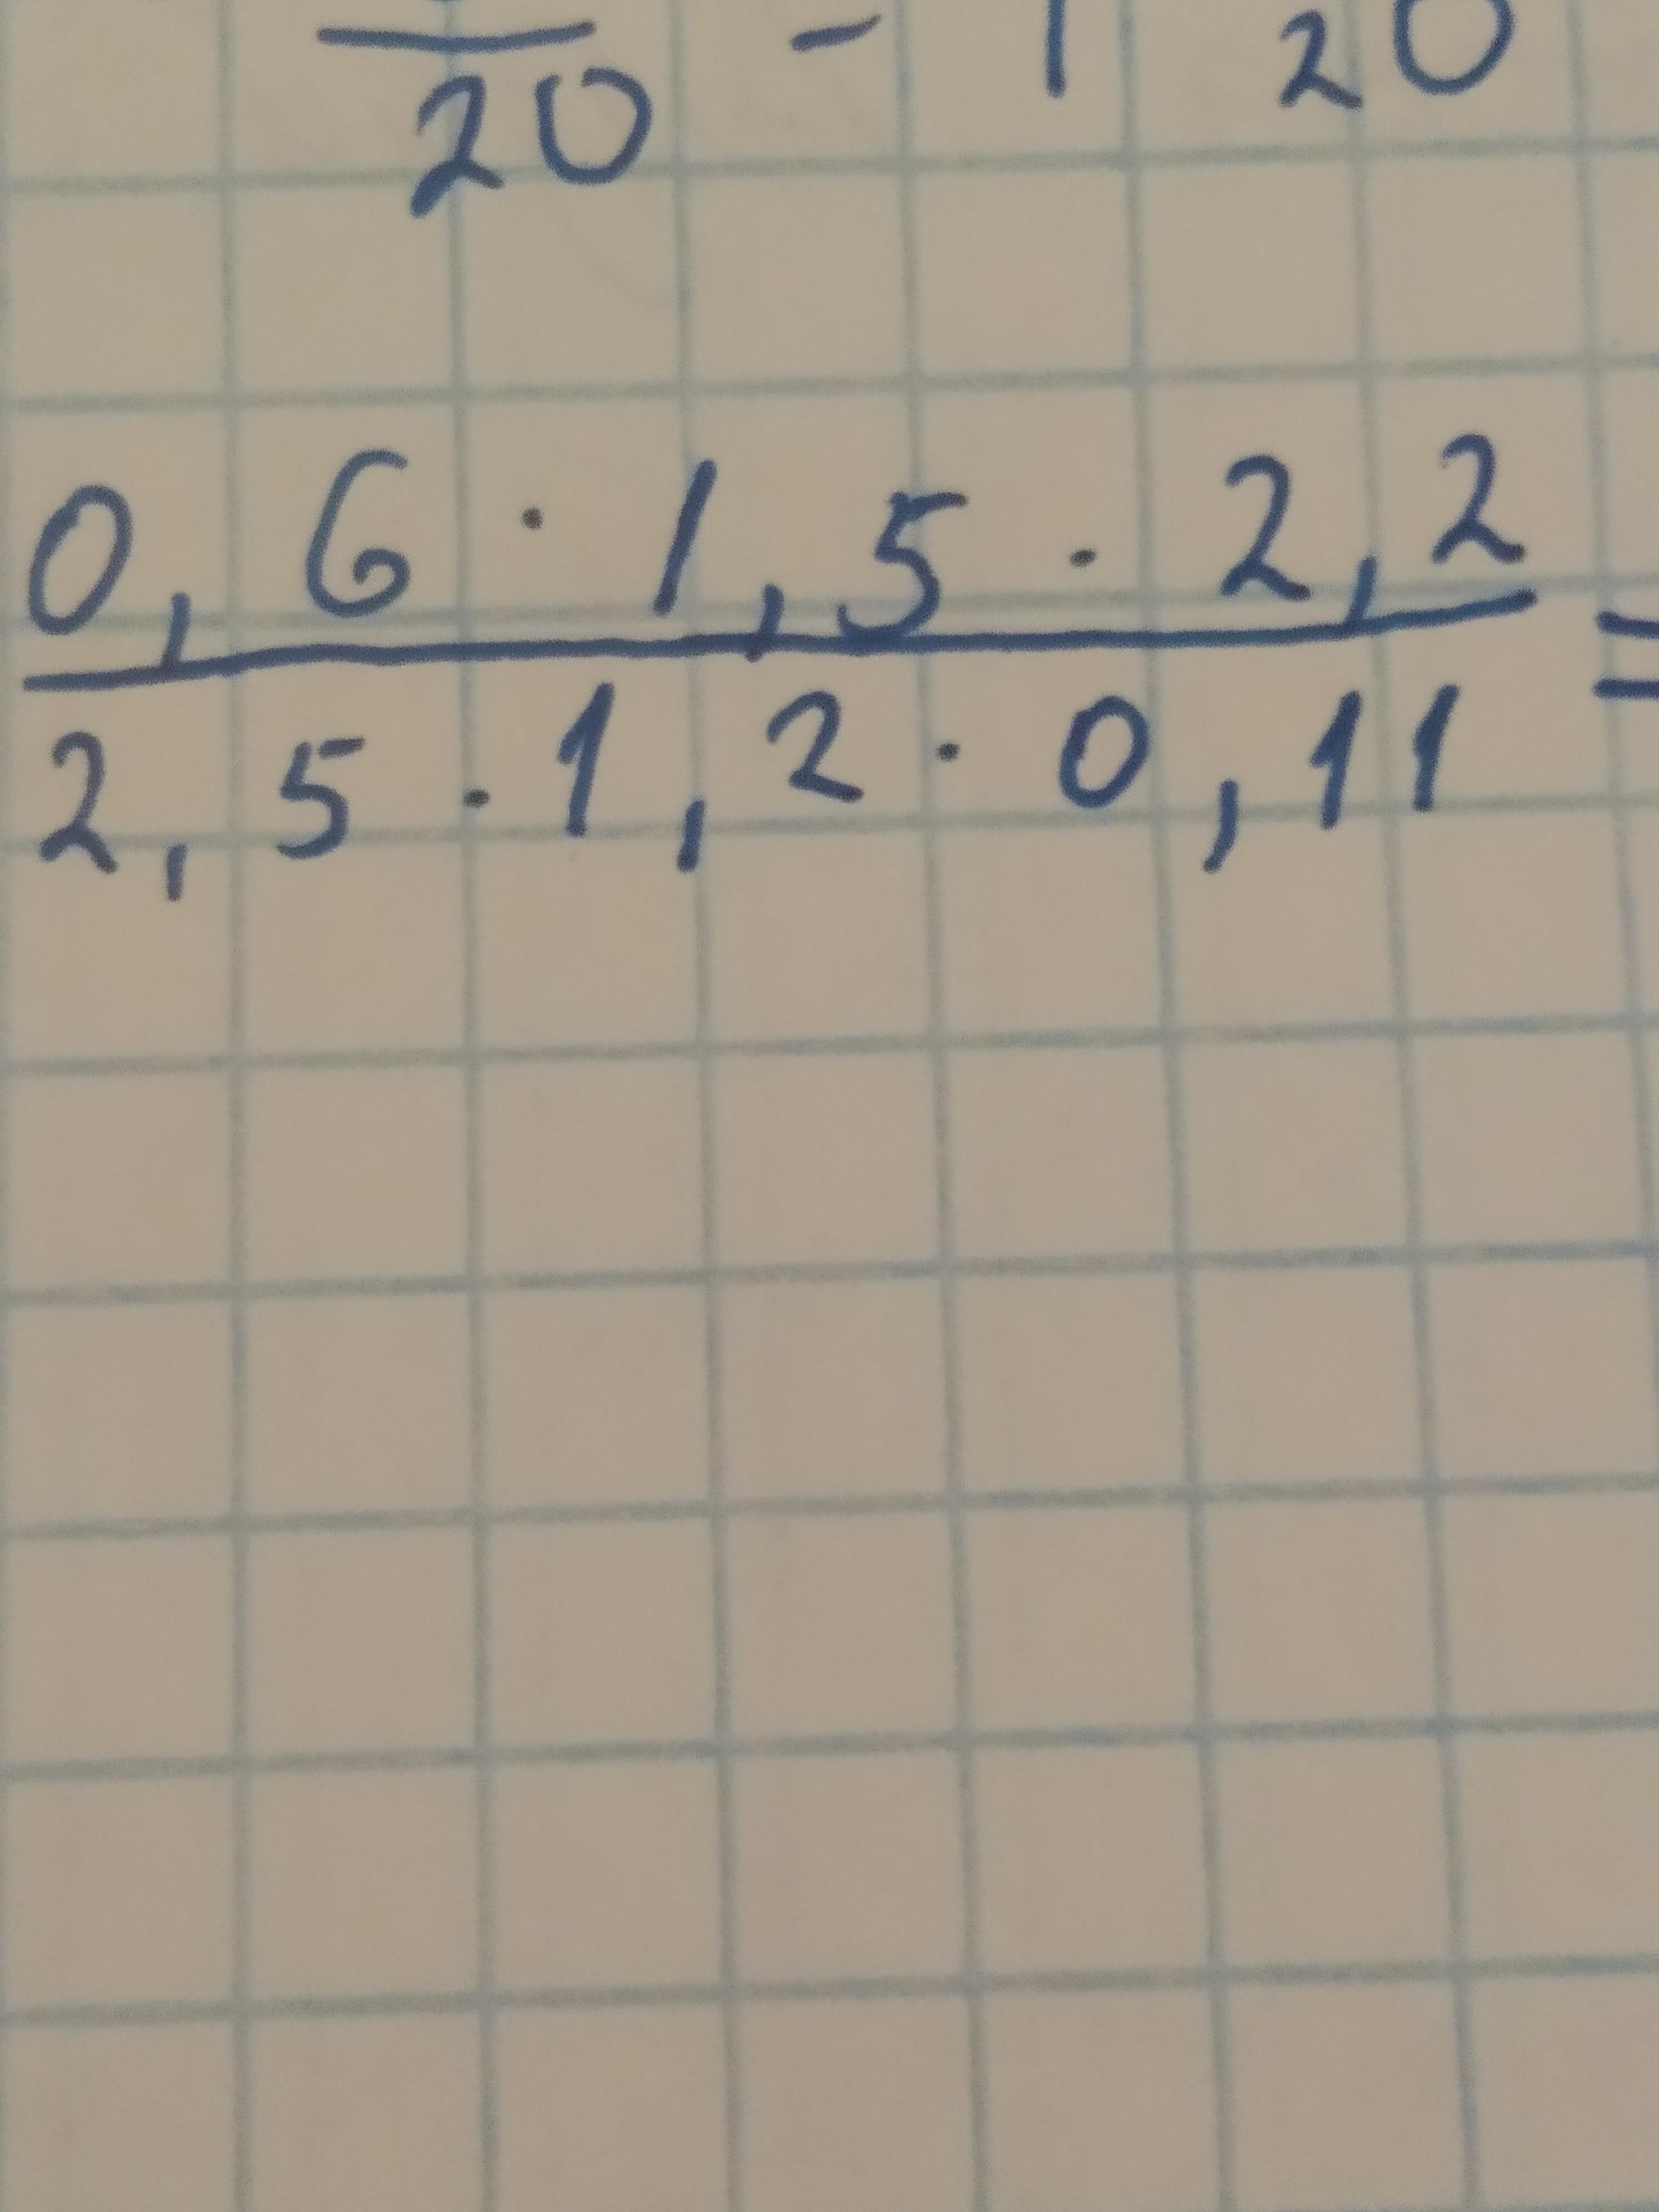 20 - 1 20
0,6 · 1,5 · 2,2
2,5 · 1,2 · 0,11 =